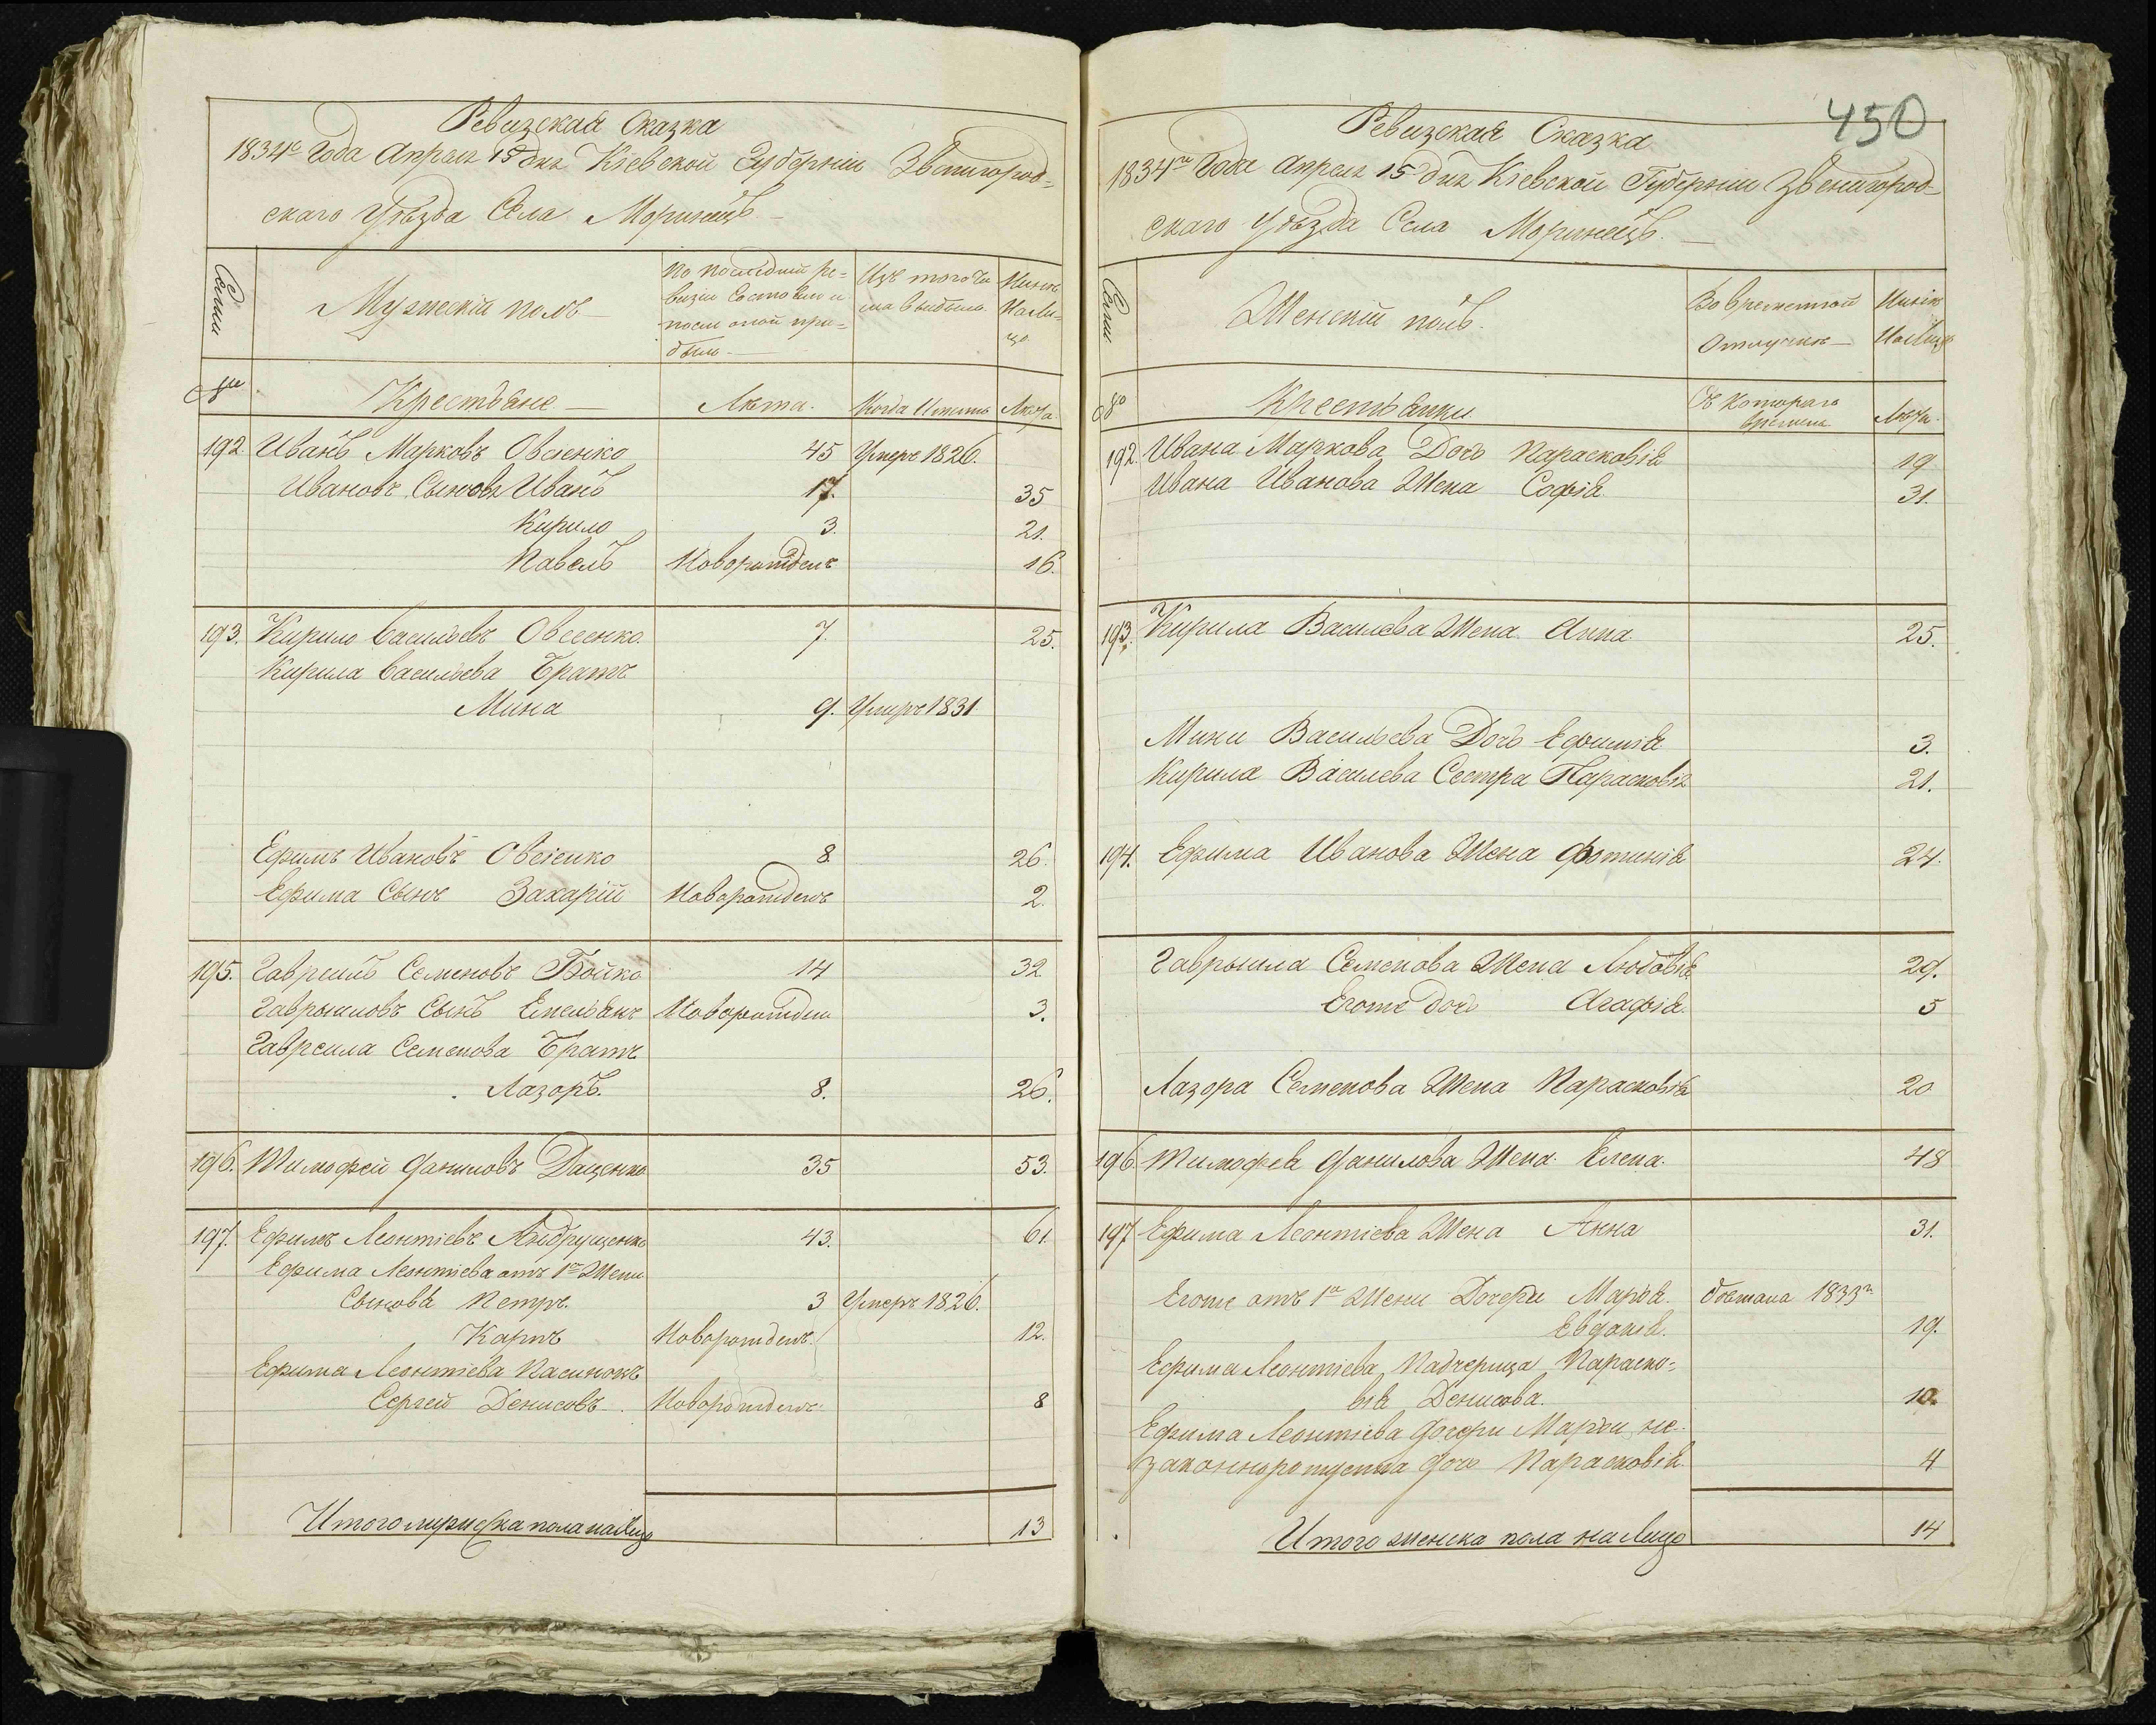 Ревизская Сказка
1834го Года Апреля 15 дня Кіевской Губерніи Звенигород=
скаго Уѣзда Села Моринецъ
Семьи
Мужескій полъ
По последней ре=
визіи состояло и
после оной при=
было
Изъ того чи
сла выбыло
Ныне
На ли=
цо
№
Крестьяне
Лѣта.
Когда Имянно
Лѣта
192. Иванъ Марковъ Овсіенко 45 Умеръ 1826.
Ивановъ Сыновья Иванъ 17. 35
Кирило 3. 21.
Павелъ Новорожденъ 16.
193. Кирило Васильевъ Овсеенко 7. 25.
Кирила Васильева Братъ
Мина 9. Умеръ 1831
Ефимъ Ивановъ Овсіенко 8 26.
Ефима Сынъ Захарій Новорожденъ 2.
195. Гавреилъ Семеновъ Бойко 14 32
Гаврыиловъ Сынъ Емельянъ Новорожден 3.
Гавреила Семенова Братъ
Лазоръ. 8. 26.
196. Тимофей Даниловъ Даценко 35 53.
197. Ефимъ Леонтіевъ Андрущенко 43. 61.
Ефима Леонтіева отъ 1й Жени
Сыновья Петръ. 3 Умеръ 1826.
Карпъ Новорожденъ 12.
Ефима Леонтіева Пасинокъ
Сергей Денисовъ Новорожденъ 8
Итого мужеска пола на лицо 13
450
Ревизская Сказка
1834го Года Апреля 15 дня Кіевской Губерніи Звенигород=
скаго Уѣзда Села Моринецъ.
Семьи
Женскій полъ.
Во временной
Отлучке
Ныне
На Лицо
№
Крестьянки
Съ Котораго
времени
Лѣта.
192. Ивана Маркова Дочь Парасковія 19
Ивана Иванова Жена Софія 31.
193. Кирила Василева Жена Анна 25.
Мини Васильева Дочь Ефимія 3.
Кирила Василева Сестра Парасковія 21.
194. Ефима Иванова Жена Фотинія 24.
Гаврыила Семенова Жена Любовія 29.
Егоже дочь Агафія. 5
Лазора Семенова Жена Парасковія 20
196. Тимофея Данилова Жена Елена. 48
197 Ефима Леонтіева Жена Анна 31.
Егоже отъ 1й Жени Дочери Марія. 1833го
Евдокія. 19.
Ефима Леонтіева Падчерица Параско=
вія Денисова. 10.
Ефима Леонтіева Дочери Маріи не=
законнорожденна дочь Парасковія. 4
Итого женска пола на Лицо 14